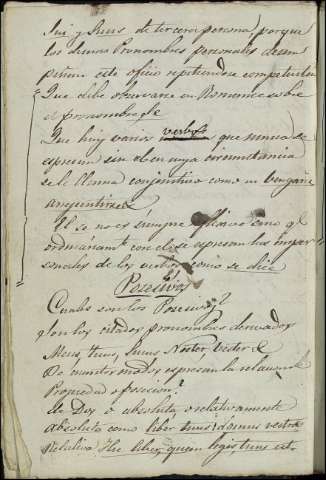 Sui y Suus de tercera persona, porque
los demas Pronombres personales desem
peñan este oficio repitiendose
Que debe observarse en Romance sobre
el pronombre se
Que hay varios verbos que nunca se
espresan sin el en cuya circunstancia
se le llama conjuntivo como
arrepentirse
El se no es siempre
ordinariamte con el se espresan las imper
sonales de los verbos como se dice
Posesivos
Cuales son los Posesivos?
Son los citados pronombres derivados
Meus, tuus, suus Noster, Vester &
De cuantos modos espresan la relacion de
Propiedad o posesion?
De Dos o absoluta, o relativamente
absoluto como liber tuus; domus vestra
Relativa Hic liber, quem legis, tuus est